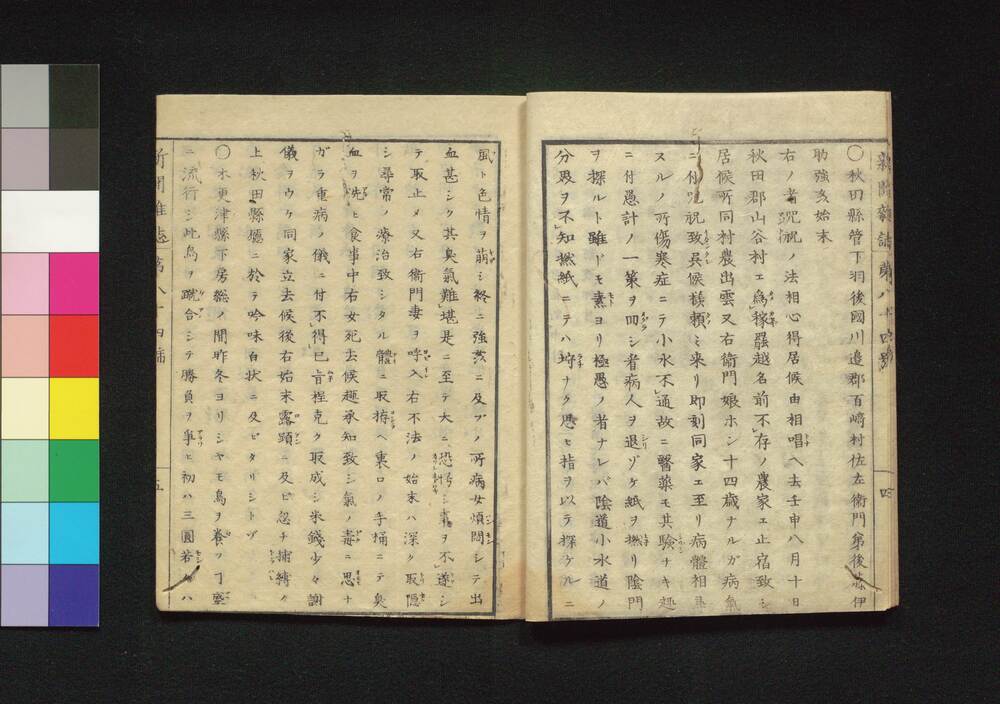 新聞雜誌第八十四號
〇秋田縣管下羽後國川邉郡百﨑村佐左衛門弟後藤伊
助強亥始末
右ノ者咒咀ノ法相心得居候由相唱ヘ去壬申八月十日
秋田郡山谷村エ爲稼罷越名前不存ノ農家エ止宿致シ
居候所同村農出雲又右衛門娘ホン十四歳ナルガ病氣
ニ付咒祝致呉候樣頼ミ来リ即刻同家エ至リ病體相
スルノ所傷寒症ニテ小水不通故ニ醫藥モ其驗ナキ趣
ニ付愚計ノ一策ヲ回シ者病人ヲ退ゾケ紙ヲ撚リ陰門
ヲ探ルト雖ドモ素ヨリ極愚ノ者ナレバ陰道小水道ノ
分界ヲ不知撚紙ニテハ埒ナク思ヒ指ヲ以テ探グルニ
四
風ト色情ヲ萠シ終ニ強亥ニ及ブノ所病女煩悶シテ出
血甚シク其臭氣難堪是ニ至テ大ニ恐怖シ意ヲ不遂シ
テ取止メ又右衛門妻ヲ呼入右不法ノ始末ハ深ク取隱
シ尋常ノ療治致シタル體ニ取拵ヘ裏口ノ手桶ニテ臭
血ヲ洗ヒ食事中右女死去候趣承知致シ氣ノ毒ニ思ナ
ガラ重病ノ儀ニ付不得已旨程克ク取成シ米錢少々謝
儀ヲウケ同家立去候後右始末露顕ニ及ビ忽チ捕縛ノ
上秋田縣廳ニ於テ吟味白状ニ及ビタリシトゾ
〇木更津縣下房總ノ間昨冬ヨリシヤモ鳥ヲ養フ丁盛
ニ流行シ此鳥ヲ蹴合シテ勝負ヲ爭ヒ初ハ三圓若クハ
新聞雜誌第八十四號
五